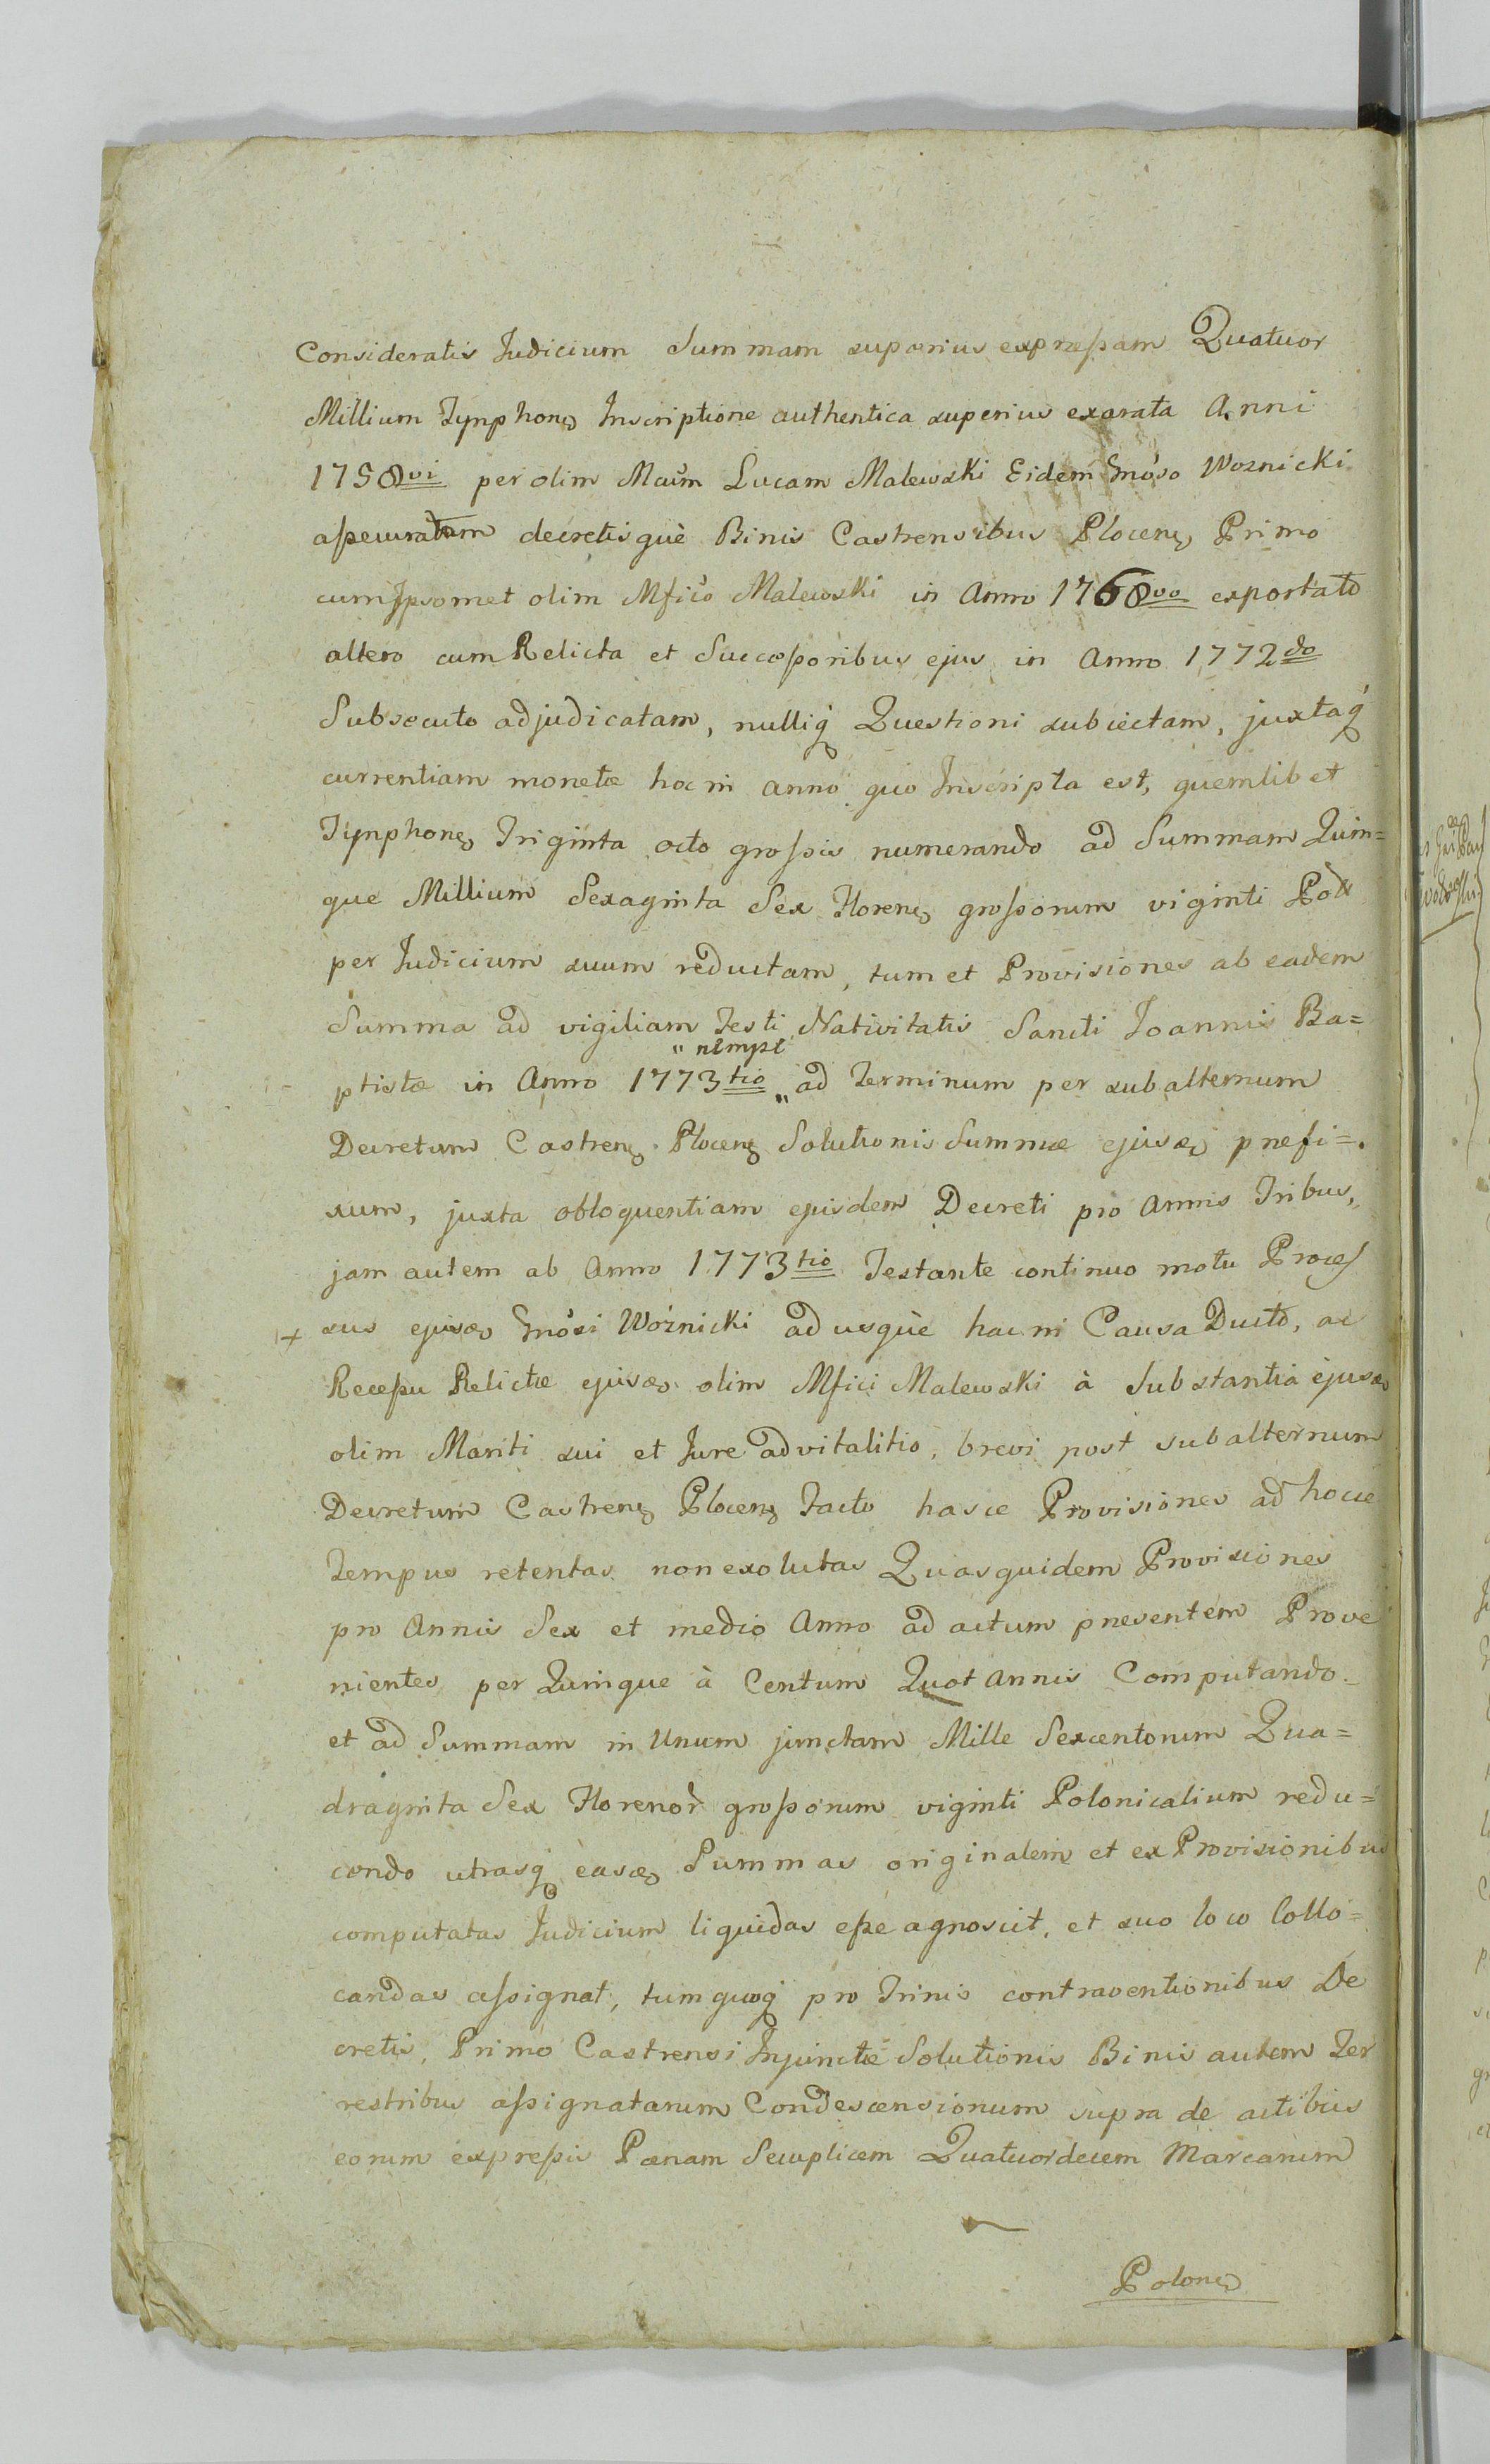 Consideratis Judicium Summam superius expressam Quatuor
Millium Tynphonꝫ Inscriptione authentica superius exarata Anni
1758vi per olim Mcum Lucam Malewski Eidem Gnoso Woznicki
assecuratam decretisque Binis Castrensibus Plocenꝫ Primo
cum Ipsomet olim Mfico Malewski in Anno 1768vo exportato
altero cum Relicta et Successoribus ejus in Anno 1772do
Subsecuto adjudicatam, nulliq Questioni subiectam, juxtaq
currentiam monetæ hoc in anno quo Inscripta est, quemlibet
Tynphonꝫ Triginta octo grossis numerando ad Summam Quin=
que Millium Sexaginta Sex Florenꝫ grossorum viginti Poll
per Judicium suum reductam, tum et Provisiones ab eadem
Summa ad vigiliam Festi Nativitatis Sancti Joannis Ba=
" nempe
ptistæ in Anno 1773tio " ad Terminum per subalternum
Decretum Castrenꝫ Plocenꝫ Solutionis Summæ ejusdꝫ prefi=
xum, juxta obloquentiam ejusdem Decreti pro Annis Tribus,
jam autem ab Anno 1773tio Testante continuo motu Proces
sus ejusdꝫ Gnosi Woźnicki ad usque hac in Causa Ducto, ac
Recessu Relictæ ejusdꝫ olim Mfici Malewski à Substantia ejusdꝫ
olim Mariti sui et Jure advitalitio, brevi post subalternum
Decretum Castrenꝫ Plocenꝫ Facto hasce Provisiones ad hocce
Tempus retentas non exolutas Quasquidem Provisiones
pro Annis Sex et medio Anno ad actum presentem Prove
nientes per Quinque à Centum Quot annis Computando
et ad Summam in Unum junctam Mille Sexcentorum Qua=
draginta Sex Florenor grossorum viginti Polonicalium redu=
cendo utrasq easdꝫ Summas originalem et ex Provisionibus
computatas Judicium liquidas esse agnoscit, et suo loco Collo=
candas assignat, tum quoq pro Trinis contraventionibus De
cretis, Primo Castrensi Injunctæ Solutionis Binis autem Ter
restribus assignatarum Condescensionum supra de actibus
eorum expressis Pænam Secuplicem Quatuordecem Marcarum
Polonꝫ